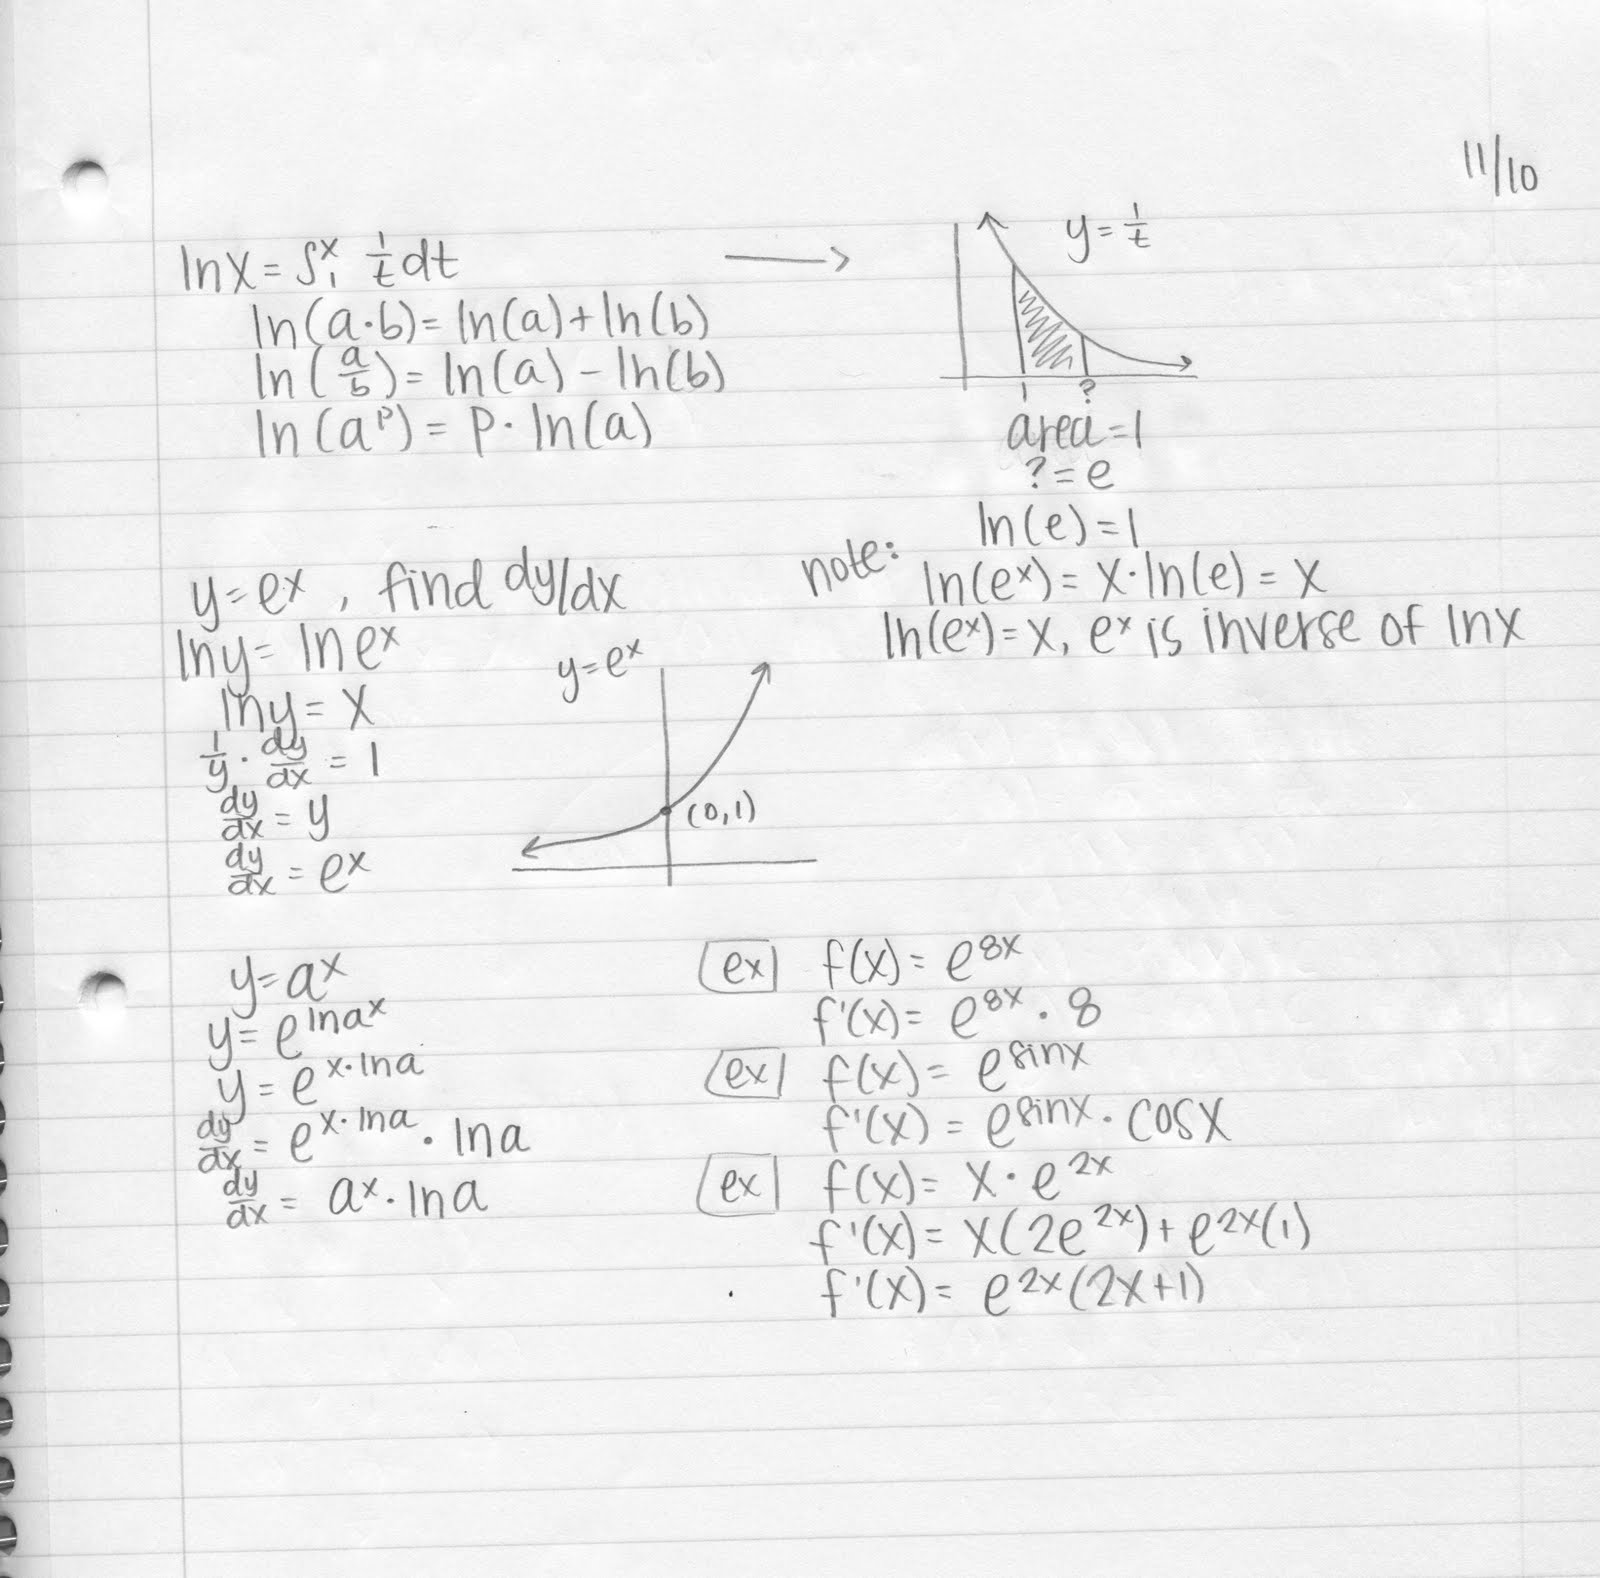 11/10
ln x = ∫₁ˣ 1/t dt ⟶
ln(a·b) = ln(a) + ln(b)
ln(a/b) = ln(a) − ln(b)
ln(aᵖ) = p · ln(a)
y = 1/t
1 ?
area = 1
? = e
ln(e) = 1
note: ln(eˣ) = x·ln(e) = x
ln(eˣ) = x, eˣ is inverse of ln x
y = eˣ, find dy/dx
ln y = ln eˣ
ln y = x
1/y · dy/dx = 1
dy/dx = y
dy/dx = eˣ
y = eˣ
(0,1)
y = aˣ
y = e^(ln aˣ)
y = e^(x·ln a)
dy/dx = e^(x·ln a) · ln a
dy/dx = aˣ · ln a
ex f(x) = e^(8x)
f'(x) = e^(8x) · 8
ex f(x) = e^(sin x)
f'(x) = e^(sin x) · cos x
ex f(x) = x · e^(2x)
f'(x) = x(2e^(2x)) + e^(2x)(1)
f'(x) = e^(2x)(2x+1)